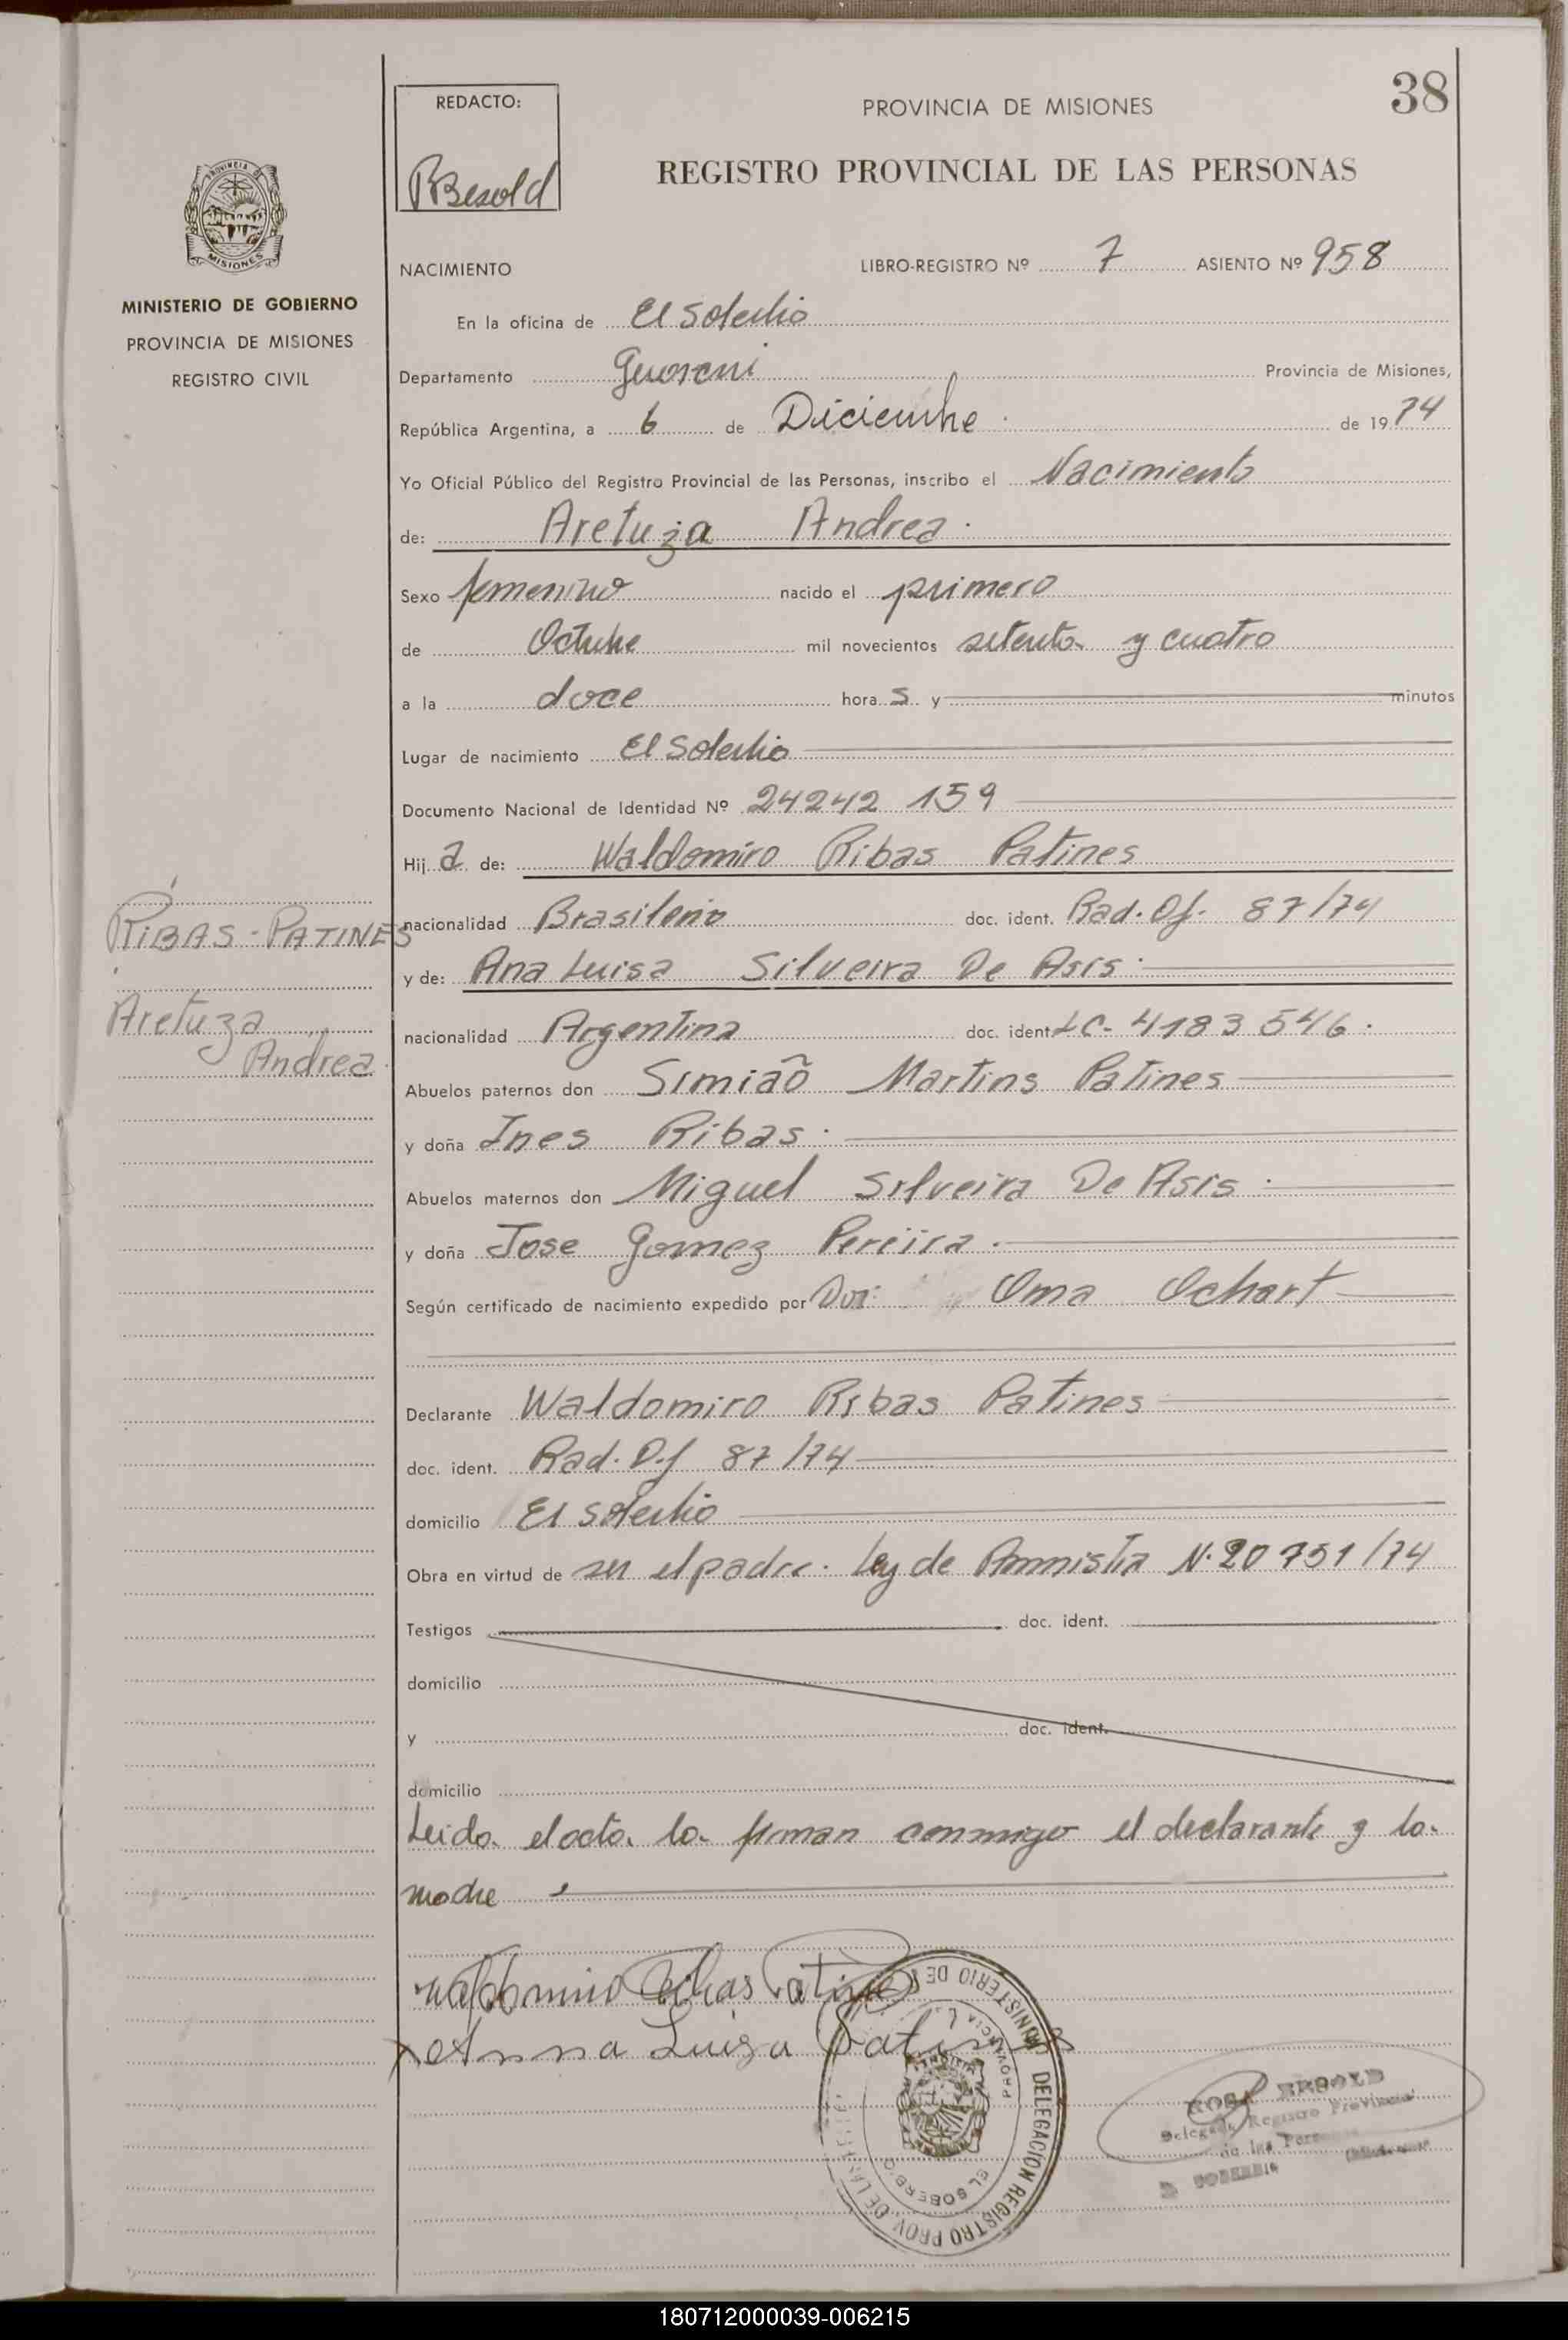 38
REDACTO:
RBesold
PROVINCIA DE MISIONES
REGISTRO PROVINCIAL DE LAS PERSONAS
PROVINCIA DE
MISIONES
MINISTERIO DE GOBIERNO
PROVINCIA DE MISIONES
REGISTRO CIVIL
NACIMIENTO LIBRO-REGISTRO Nº 7 ASIENTO Nº 958
En la oficina de El Soberbio
Departamento Guarani Provincia de Misiones,
República Argentina, a 6 de Diciembre de 1974
Yo Oficial Público del Registro Provincial de las Personas, inscribo el Nacimiento
de: Aretuza Andrea.
Sexo femenino nacido el primero
de Octubre mil novecientos setenta y cuatro
a la doce hora s y minutos
Lugar de nacimiento El Soberbio
Documento Nacional de Identidad Nº 24242 159
Hij a de: Waldomiro Ribas Patines
RIBAS - PATINES
Aretuza
Andrea
nacionalidad Brasileño doc. ident. Rad. Of. 87/74
y de: Ana Luisa Silveira De Asis.
nacionalidad Argentina doc. ident LC- 4183546.
Abuelos paternos don Simiaõ Martins Patines
y doña Ines Ribas.
Abuelos maternos don Miguel Silveira De Asis.
y doña Jose Gomez Pereira.
Según certificado de nacimiento expedido por Oma Ochart
Declarante Waldomiro Ribas Patines
doc. ident. Rad. Of 87/74
domicilio El Soberbio
Obra en virtud de ser el padre. Ley de Amnistia N. 20751/74
Testigos doc. ident.
domicilio
y doc. ident.
domicilio
Leida el acta la firman conmigo el declarante y la
madre
Waldomiro Ribas Patines
x Anna Luiza Patines
MINISTERIO DE DELEGACION REGISTRO PROV. DE LAS
PROVINCIA
EL SOBERBIO
ROSA BESOLD
Delegada Registro Provincial
de las Personas
El SOBERBIO
180712000039-006215